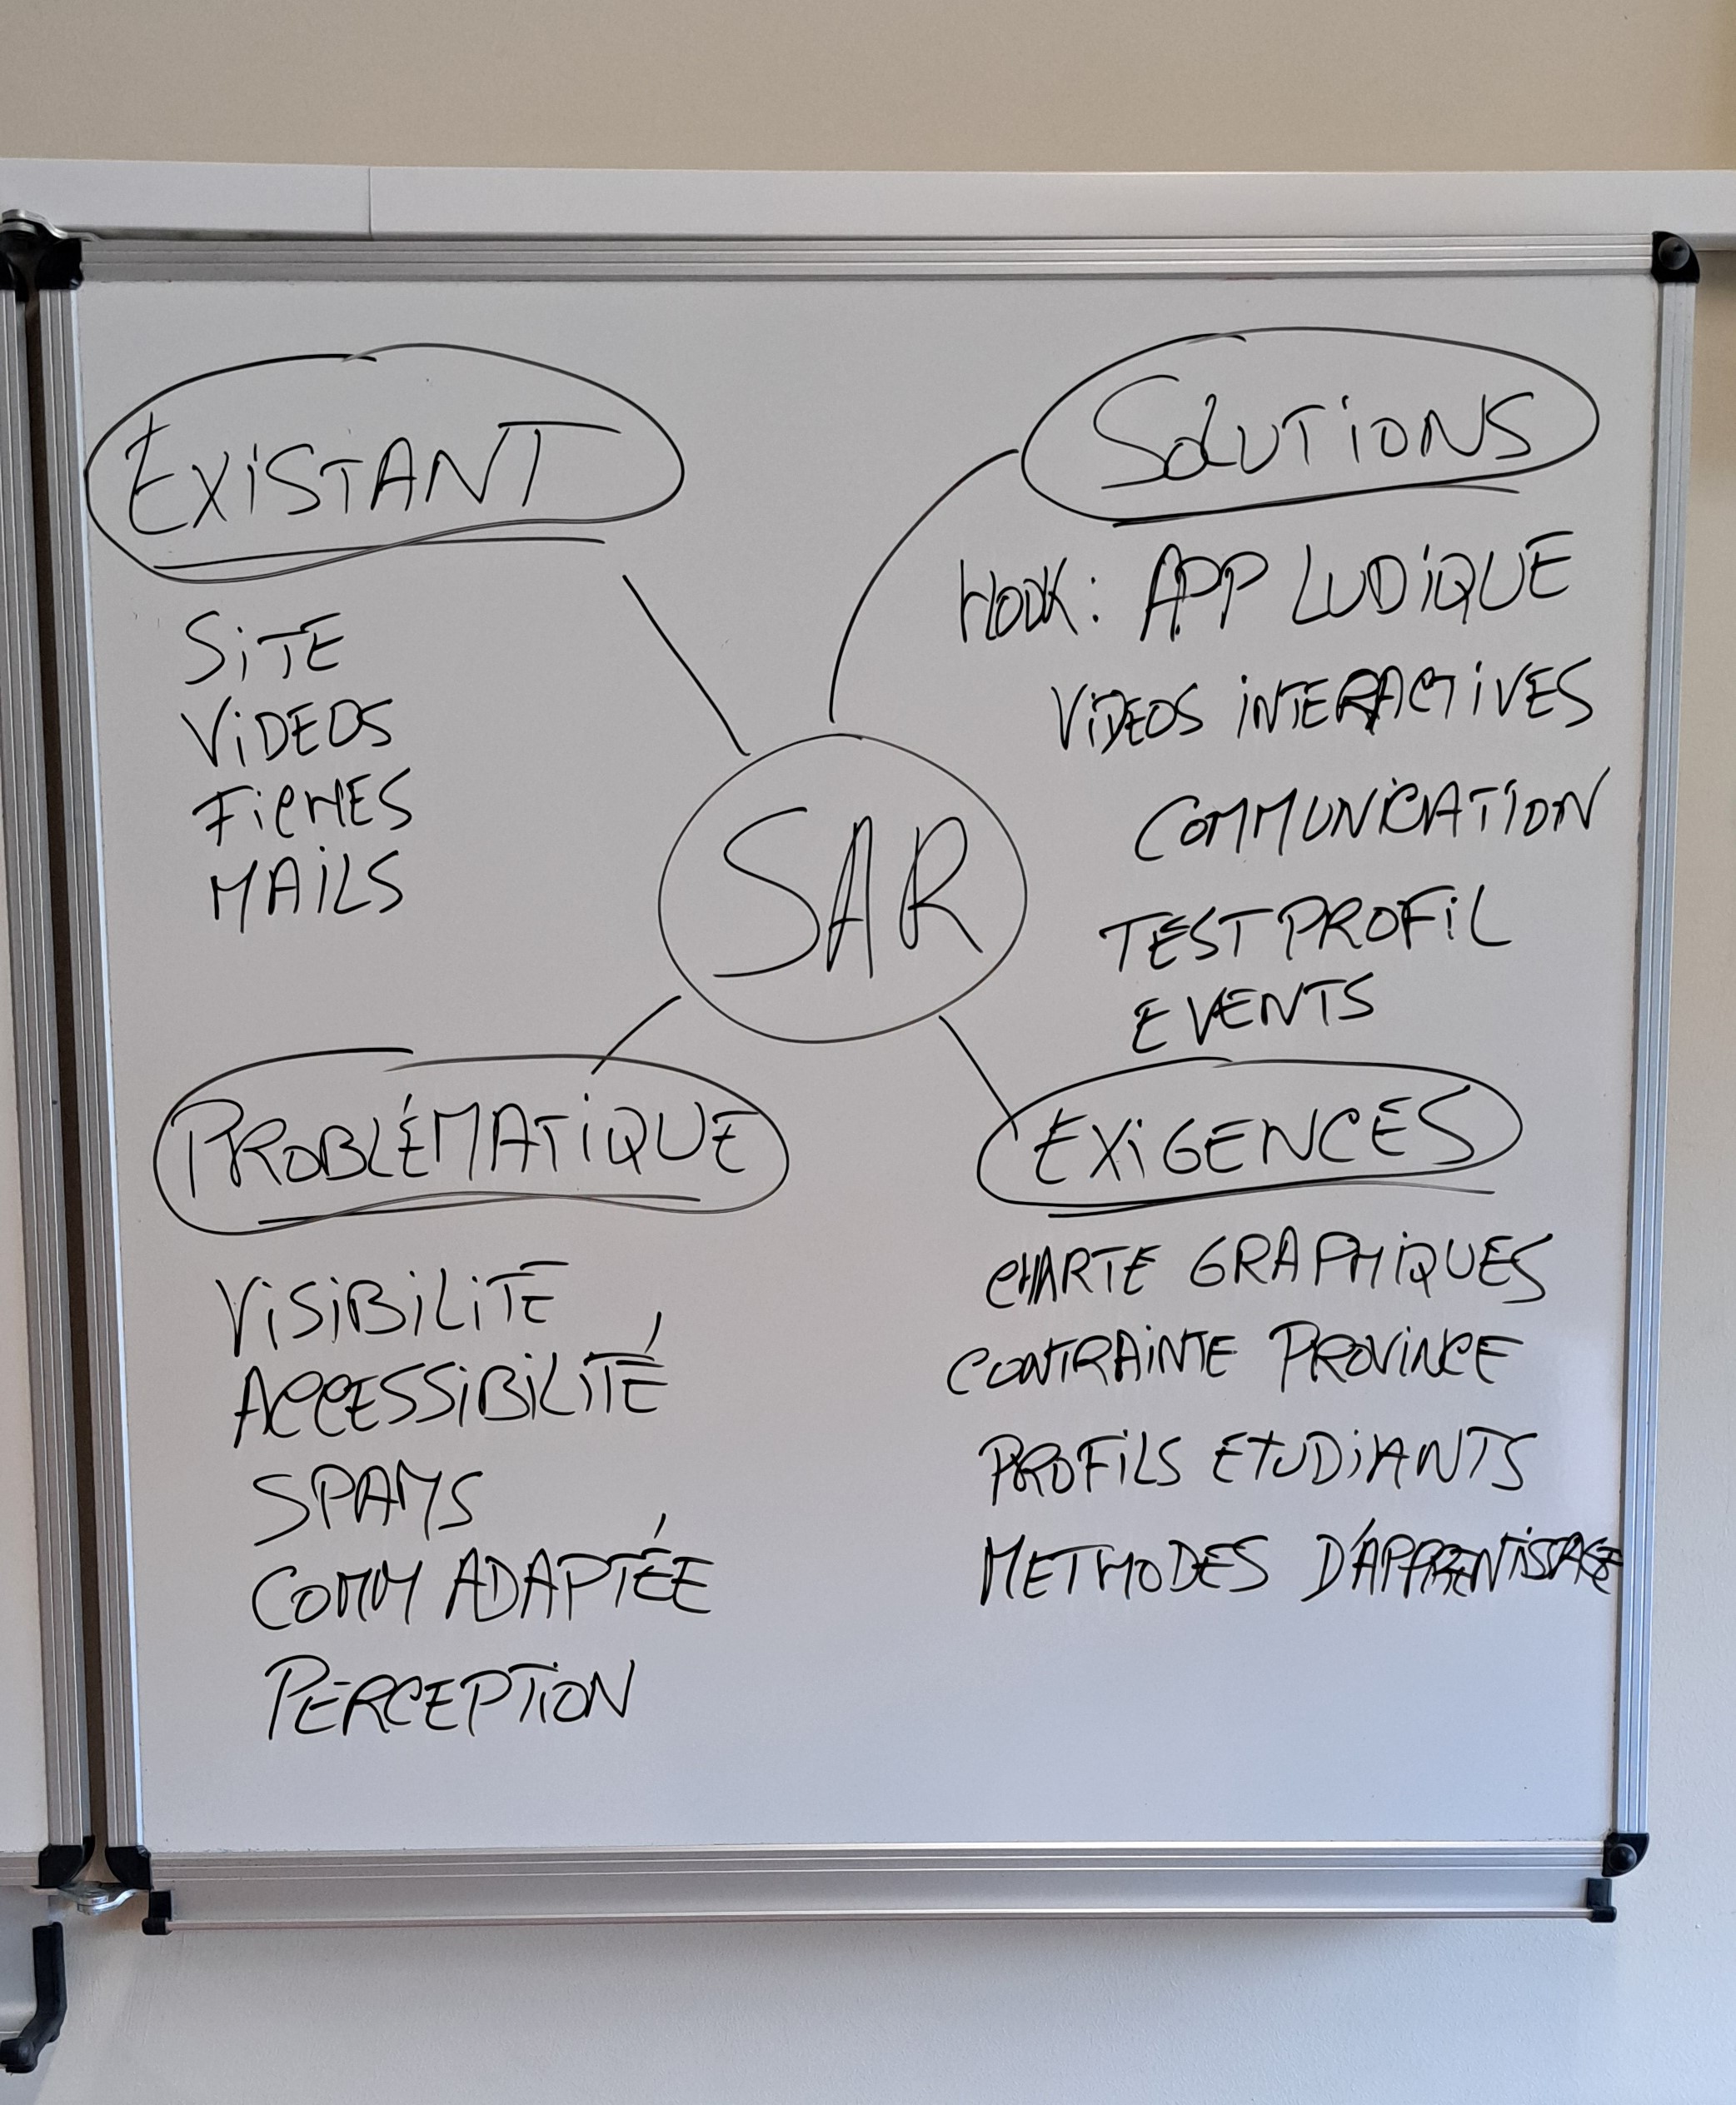 EXISTANT
SITE
VIDEOS
FICHES
MAILS
SOLUTIONS
HOOK : APP LUDIQUE
VIDEOS INTERACTIVES
COMMUNICATION
TEST PROFIL
EVENTS
SAR
PROBLÉMATIQUE
VISIBILITE
ACCESSIBILITÉ
SPAMS
COMM ADAPTÉE
PERCEPTION
EXIGENCES
CHARTE GRAPHIQUES
CONTRAINTE PROVINCE
PROFILS ETUDIANTS
METHODES D'APPRENTISSAGE